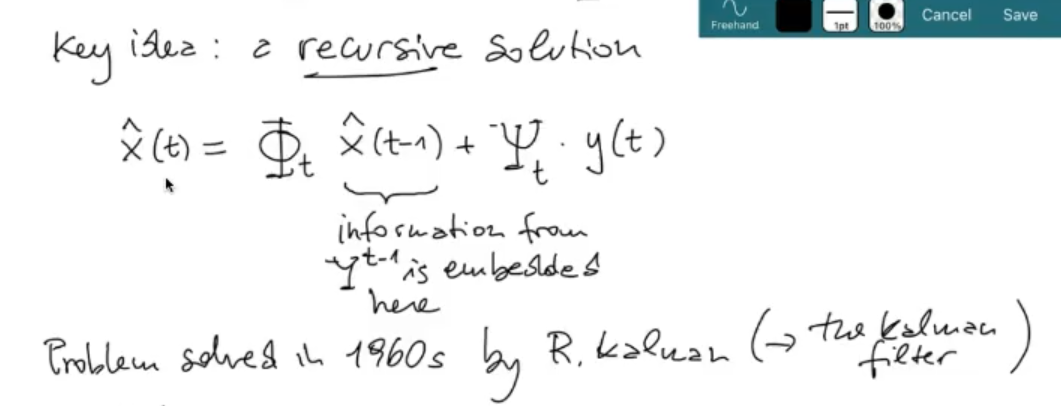 Freehand 1pt 100% Cancel Save
Key idea: a recursive solution
x̂(t) = Φₜ x̂(t-1) + Ψₜ · y(t)
information from
Y^{t-1} is embedded
here
Problem solved in 1960s by R. Kalman (→ the Kalman
filter)